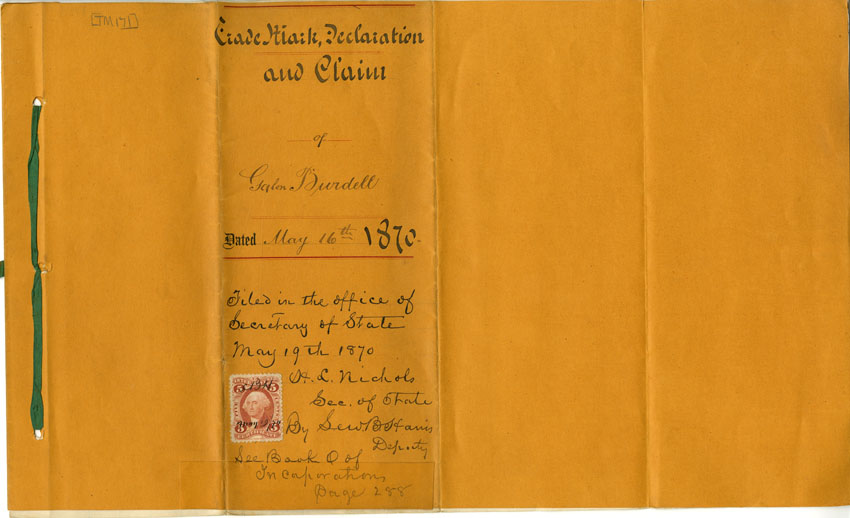 [TM171]
Trade Mark, Declaration
and Claim
of
Galen Burdell
Dated May 16th 1870
Filed in the office of
Secretary of State
May 19th 1870
H. L. Nichols
Sec. of State
By Lew B Harris
Deputy
See Book O of
Incorporations
Page 288